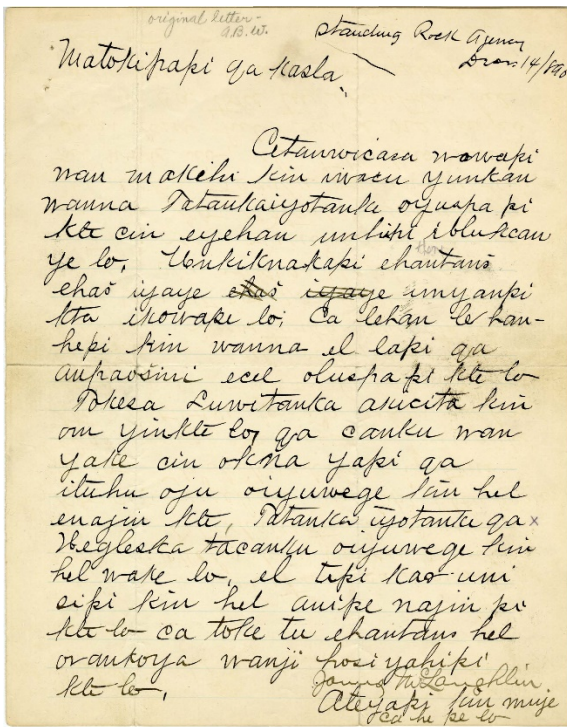 original letter-
A.B.W.
Standing Rock Agency
Decr 14/890
Matokipapi qa Kasla.
Cetanwicasa wowapi
wan makchi kin iwacu yunkan
wanna Tatankaiyotanke oyuspa pi
kte cin eyehan unhipi iblukcan
ye lo. Unkiknakapi ehantans
ehas iyaye ehas iyaye unyanpi
kta ikowape lo; Ca lehan le han-
hepi kin wanna el lapi qa
anpaosni ecel oluspapi kte lo
Tokesa Luwitanka akicita kin
om yinkte lo, qa canku wan
yake cin okna yapi qa
ituhu oju oiyuwege kin hel
enajin kte, Tatanka iyotanke qa x
Hegleska tacanku oiyuwege kin
hel wake lo, el tipi
sipi kin hel anipe najin pi
kte lo ca toke tu ehantans hel
orankoya wanji hosiyahipi
kte lo,
James McLaughlin
Ateyapi kin miye
ca he pe lo